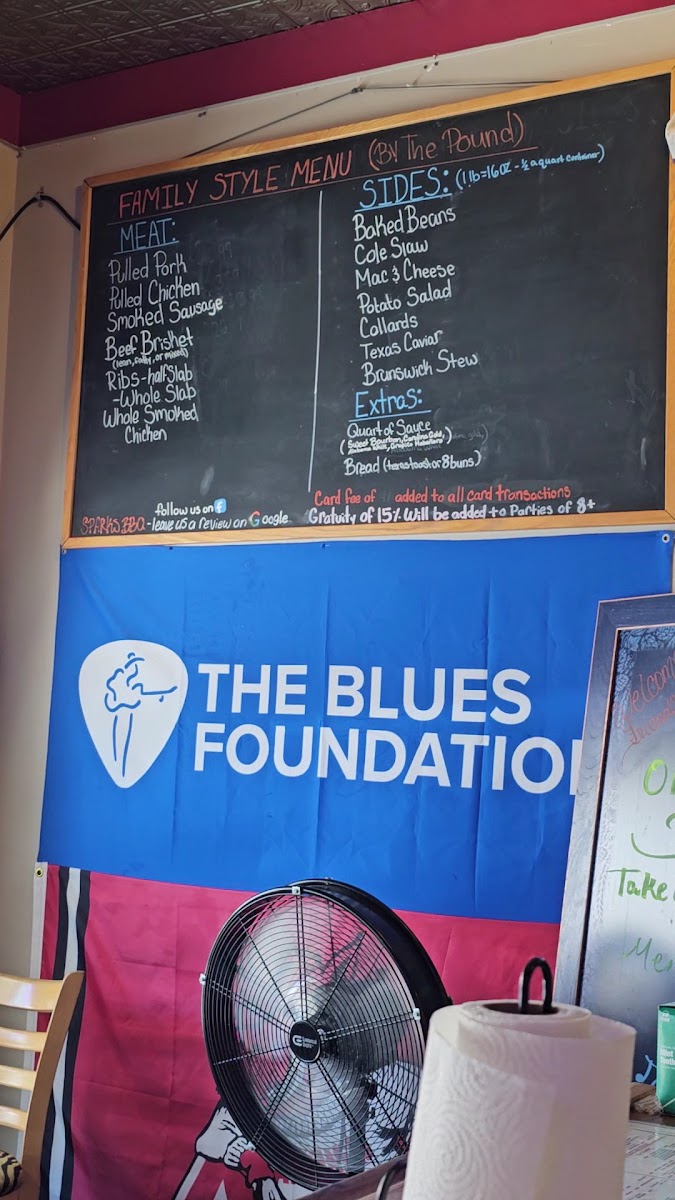 FAMILY STYLE MENU (By The Pound)
MEAT:
Pulled Pork
Pulled Chicken
Smoked Sausage
Beef Brisket
(lean, fatty, or mixed)
Ribs - half Slab
- Whole Slab
Whole Smoked
Chicken
SIDES: (1 lb = 16 oz - ½ a quart container)
Baked Beans
Cole Slaw
Mac & Cheese
Potato Salad
Collards
Texas Caviar
Brunswick Stew
Extras:
Quart of Sauce
(Sweet Bourbon, Carolina Gold,
Alabama White,
Bread (texas toast or 8 buns)
follow us on f
SPARKS BBQ - leave us a review on Google
Card fee of added to all card transactions
Gratuity of 15% Will be added to Parties of 8+
THE BLUES
FOUNDATIO
Take